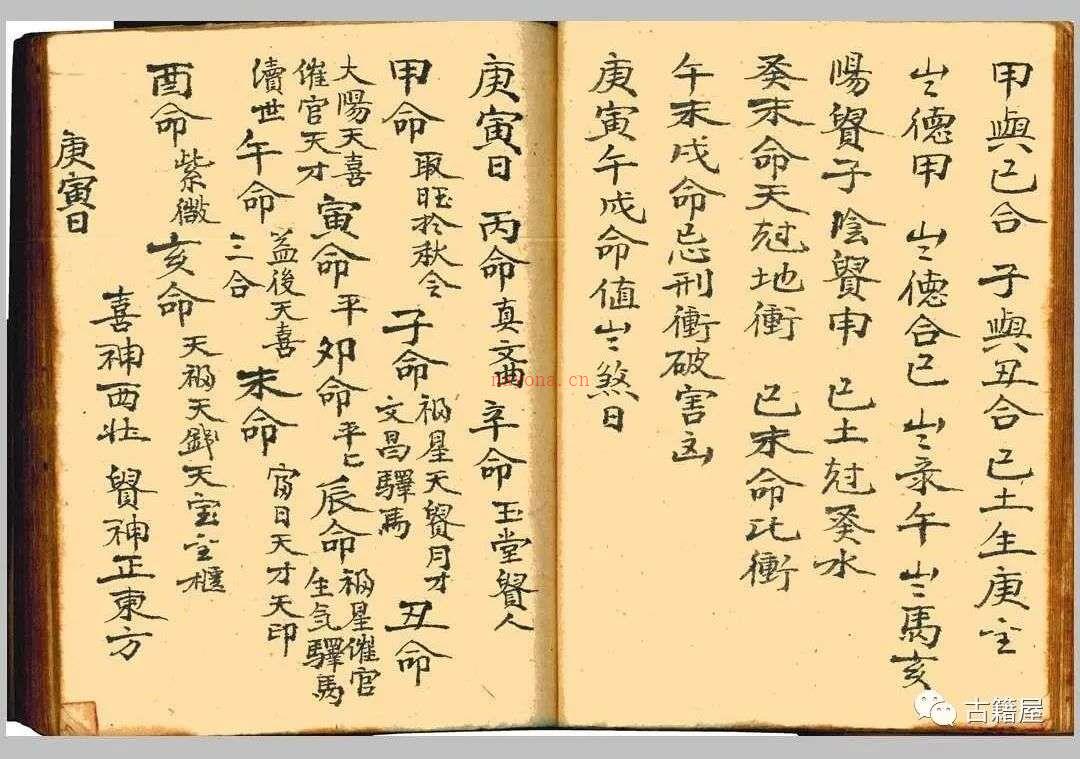 甲與己合 子與丑合 己土生庚金
岁德甲 岁德合己 岁录午 岁馬亥
陽貿子陰貿申 己土尅癸水
癸未命天尅地衝 己未命比衝
午未戌命忌刑衝破害凶
庚寅午戌命值岁煞日
庚寅日 丙命真文曲 辛命玉堂貿人
甲命 取旺於秋令 子命 福星天貿月才
文昌驛馬 丑命
大陽天喜
催官天才 寅命平 卯命平七 辰命 福星催官
生气驛馬
瀆世 午命 益後天喜
三合 未命 甯日天才天印
酉命 紫微 亥命 天福天錢天宝金櫃
喜神西北 貿神正東方
庚寅日
nayona.cn
古籍屋